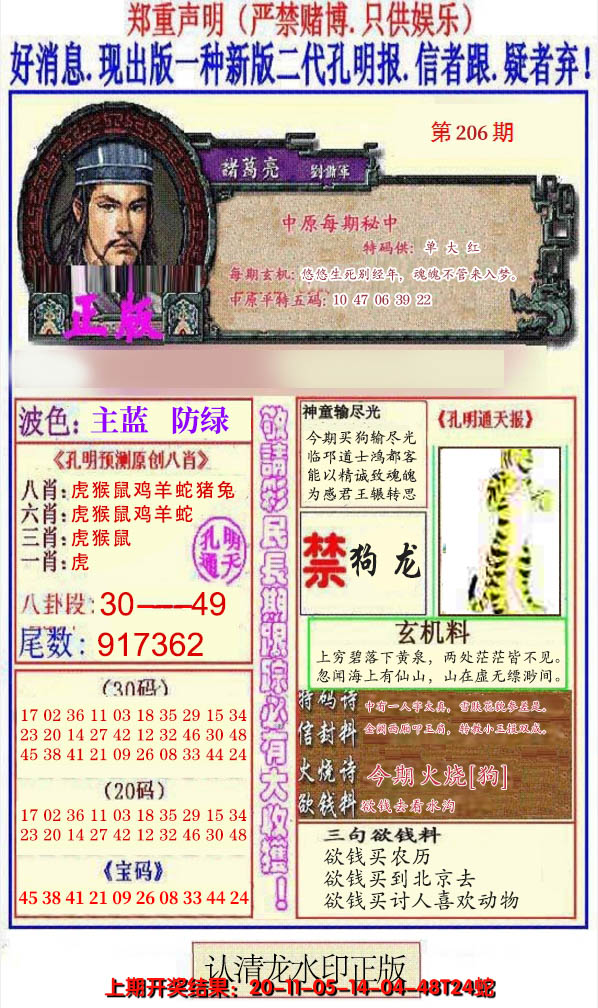 郑重声明（严禁赌博.只供娱乐）
好消息.现出版一种新版二代孔明报.信者跟.疑者弃！
第206期
諸葛亮 劉備軍
中原每期秘中
特码供：单大红
每期玄机：悠悠生死别经年，魂魄不曾来入梦。
中原平特五码：10 47 06 39 22
正版
波色：主蓝 防绿
《孔明预测原创八肖》
八肖：虎猴鼠鸡羊蛇猪兔
六肖：虎猴鼠鸡羊蛇
三肖：虎猴鼠
一肖：虎
孔明通天
八卦段：30——49
尾数：917362
（30码）
17 02 36 11 03 18 35 29 15 34
23 20 14 27 42 12 32 46 30 48
45 38 41 21 09 26 08 33 44 24
（20码）
17 02 36 11 03 18 35 29 15 34
23 20 14 27 42 12 32 46 30 48
《宝码》
45 38 41 21 09 26 08 33 44 24
敬請彩民長期跟踪必有大收獲！
神童输尽光
今期买狗输尽光
临邛道士鸿都客
能以精诚致魂魄
为感君王辗转思
禁狗龙
《孔明通天报》
玄机料
上穷碧落下黄泉，两处茫茫皆不见。
忽闻海上有仙山，山在虚无缥渺间。
特码诗
信封料
中有一人字太真，雪肤花貌参差是。
金阙西厢叩玉扃，转教小玉报双成。
火烧诗
今期火烧[狗]
欲钱料
欲钱去看水沟
三句欲钱料
欲钱买农历
欲钱买到北京去
欲钱买讨人喜欢动物
认清龙水印正版
上期开奖结果：20-11-05-14-04-48T24蛇